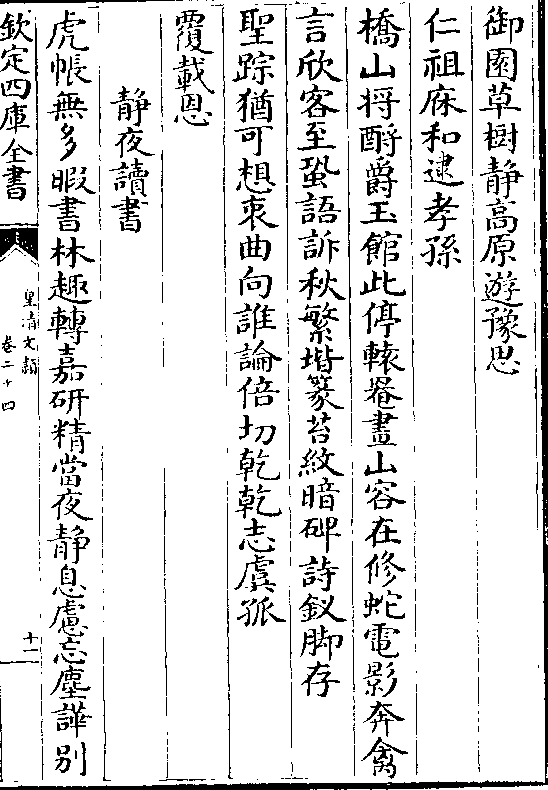 御園草樹静高原遊豫思
仁祖庥和逮孝孫
橋山将酹爵玉館此停轅罨畫山容在修蛇電影奔禽
言欣客至蛩語訴秋繁堦篆苔紋暗碑詩釵脚存
聖踪猶可想衷曲向誰論倍切乾乾志虞孤
覆載恩
静夜讀書
虎帳無多暇書林趣轉嘉研精當夜静息慮忘塵譁别
欽定四庫全書
皇清文穎
卷二十四
十一